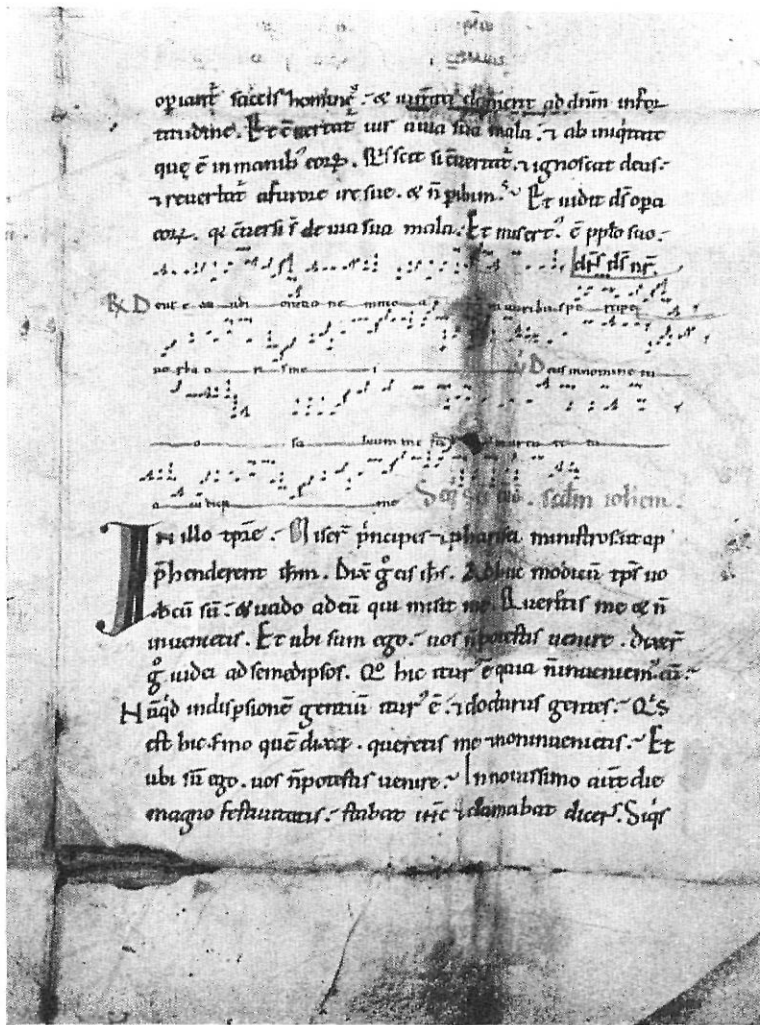 opiant saccis homines : & iumta clament ad dnm infor
titudine. Et cvertat uir a uia sua mala : 7 ab iniqtat
que e in manib eorum. Qis scit si cvertat 7 ignoscat deus :
7 revertat a furore ire sue. & n pibim. Et uidit ds opa
eorum. qr cversi st de uia sua mala. Et misert e pplo suo.
dns ds nr.
R Deus exaudi oratione mea auribus pe rcipe
uerba o ris me i V Deus in nomine tu
o saluum me fac uirtute tu
a iudica me Seq sci eug. scdm iohem.
In illo tpre. Miser pncipes 7 pharisei ministros ut ap
phenderent ihm. Dix g eis ihs. Adhuc modicu tps uo
biscu su : & uado ad eu qui misit me. Queretis me & n
inuenietis. Et ubi sum ego. uos n potestis uenire. dixer
g iudei ad semedipsos. Qo hic itur e quia n inueniem eu.
Nuqd indispsione gentiu itur e. 7 docturus gentes. Qis
est hic smo que dixit. queretis me 7 non inuenietis. Et
ubi su ego. uos n potestis uenire. In nouissimo aut die
magno festiuitatis. stabat ihc 7 clamabat dicens. Siqs